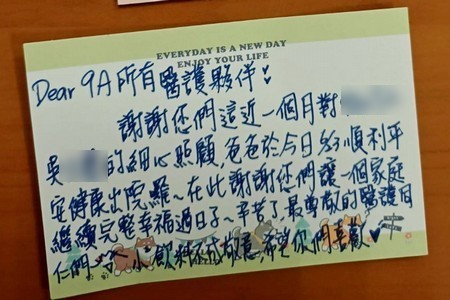 EVERYDAY IS A NEW DAY
ENJOY YOUR LIFE
Dear 9A所有醫護夥伴♥
謝謝您們這近一個月對
吳 的細心照顧,爸爸於今日 順利平
安健康出院囉~在此謝謝您們讓一個家庭
繼續完整幸福過日子~辛苦了,最尊敬的醫護同
仁們~ 小飲料不成敬意,希望你們喜歡♥